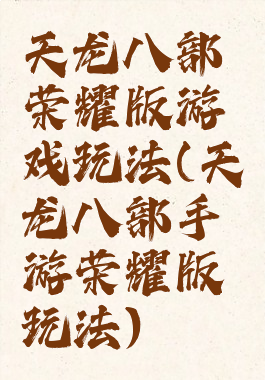 天龙八部
荣耀版游
戏玩法(天
龙八部手
游荣耀版
玩法)